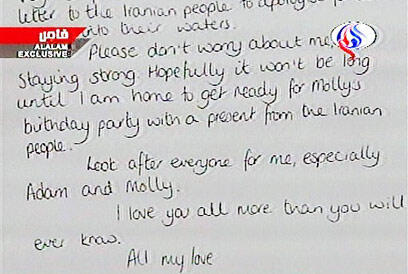 letter to the Iranian people to apologise
into their waters.
Please don't worry about me,
staying strong. Hopefully it won't be long
until I am home to get ready for Molly's
birthday party with a present from the Iranian
people.
Look after everyone for me, especially
Adam and Molly.
I love you all more than you will
ever know.
All my love
ALALAM
EXCLUSIVE